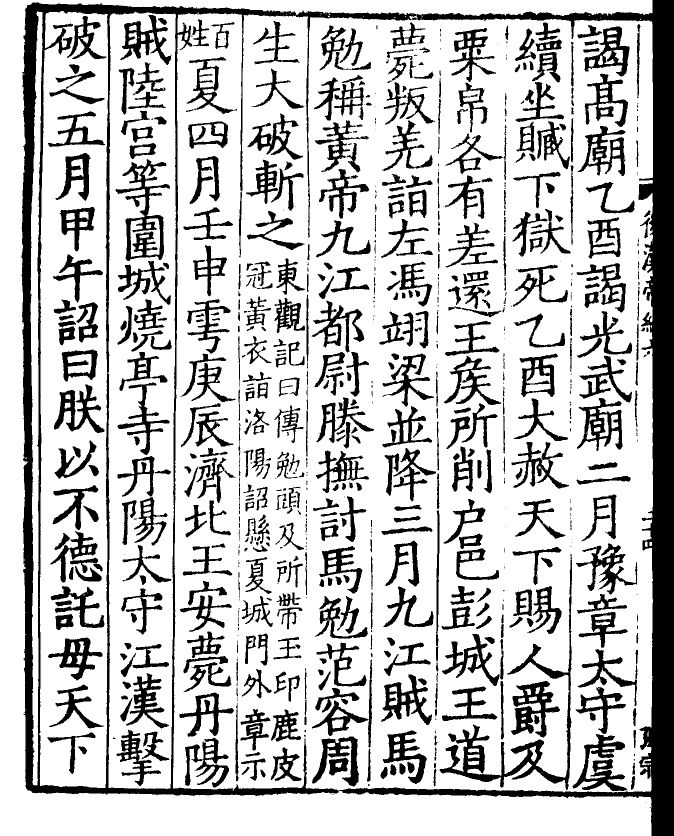 謁髙廟乙酉謁光武廟二月豫章太守虞
續坐贓下獄死乙酉大赦天下賜人爵及
粟帛各有差還王矦所削户邑彭城王道
薨叛羌詣左馮翊梁並降三月九江賊馬
勉稱黃帝九江都尉滕撫討馬勉范容周
生大破斬之東觀記曰傳勉頭及所帶玉印鹿皮
冠黃衣詣洛陽詔懸夏城門外章示
百姓夏四月壬申雩庚辰濟北王安薨丹陽
賊陸宫等圍城燒亭寺丹陽太守江漢擊
破之五月甲午詔曰朕以不德託母天下